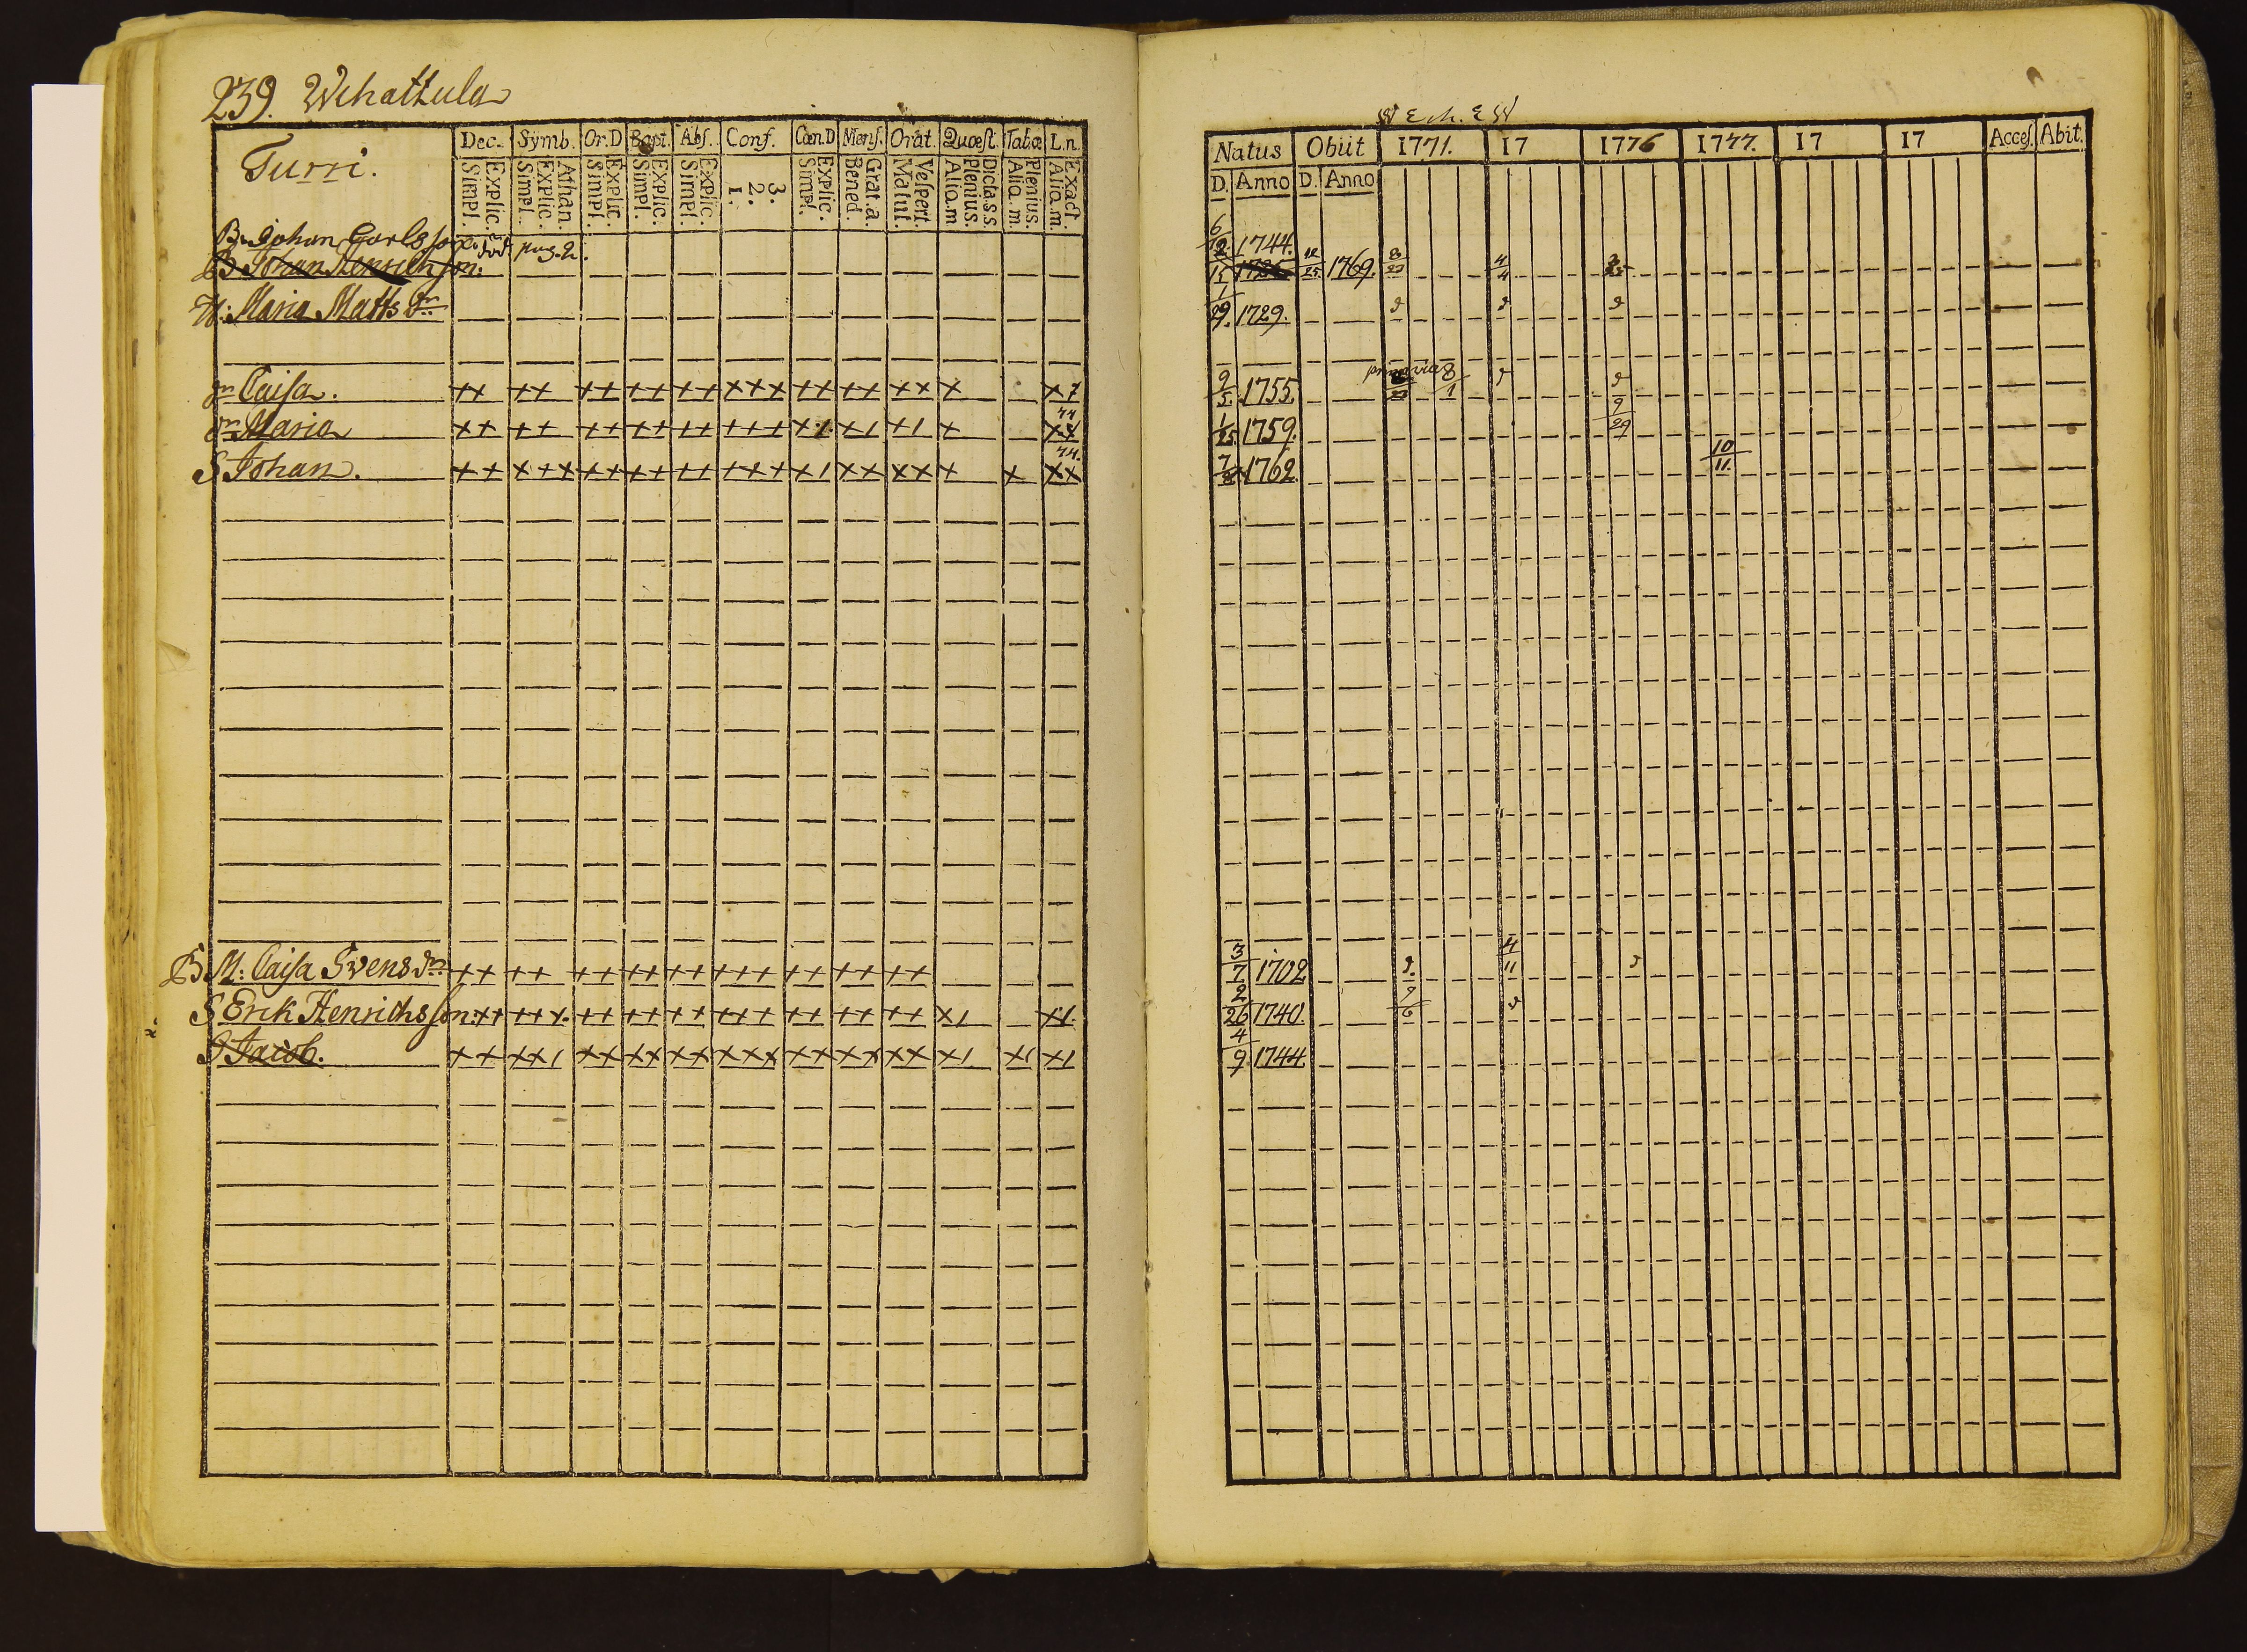 239. Wehattula
Turri.
Dec. Symb. Or.D Bapt. Abs. Conf. Cœn.D Mens. Orat. Quæst. Tab.æ L.n.
Explic. Simpl. Athan. Explic. Simpl. Explic. Simpl. Explic. Simpl. Explic. Simpl. 3. 2. 1. Explic. Simpl. Grat.a. Bened. Vespert. Matut. Dicta.s.s. Plenius. Aliq.m Plenius. Aliq.m. Exact. Aliq.m.
B. Johan Carlsson. pag. 2.
B Johan Henrichsson.
H: Maria Matts dr
dr Caisa. ++ ++ ++ ++ ++ +++ ++ ++ ++ +
dr Maria ++ ++ ++ ++ ++ +++ +1 +1 +1 +
S Johan. ++ +++ ++ ++ ++ +++ +1 ++ ++ + + ++
B M: Caisa Svens dr ++ ++ ++ ++ ++ +++ ++ ++ ++
S Erik Henrichsson. ++ +++ ++ ++ ++ +++ ++ ++ ++ +1 +1
S Jacob. ++ ++1 ++ ++ ++ +++ ++ ++ ++ +1 +1 +1
Natus Obiit 1771. 17 1776 1777. 17 17 Acces. Abit.
D. Anno D. Anno
1744.
1769.
29. 1729.
9/5. 1755. 8/1
1/25. 1759. 9/29
1762 10/11.
3/7 1702 4/11
2/26 1740. 9/6
4/9 1744.